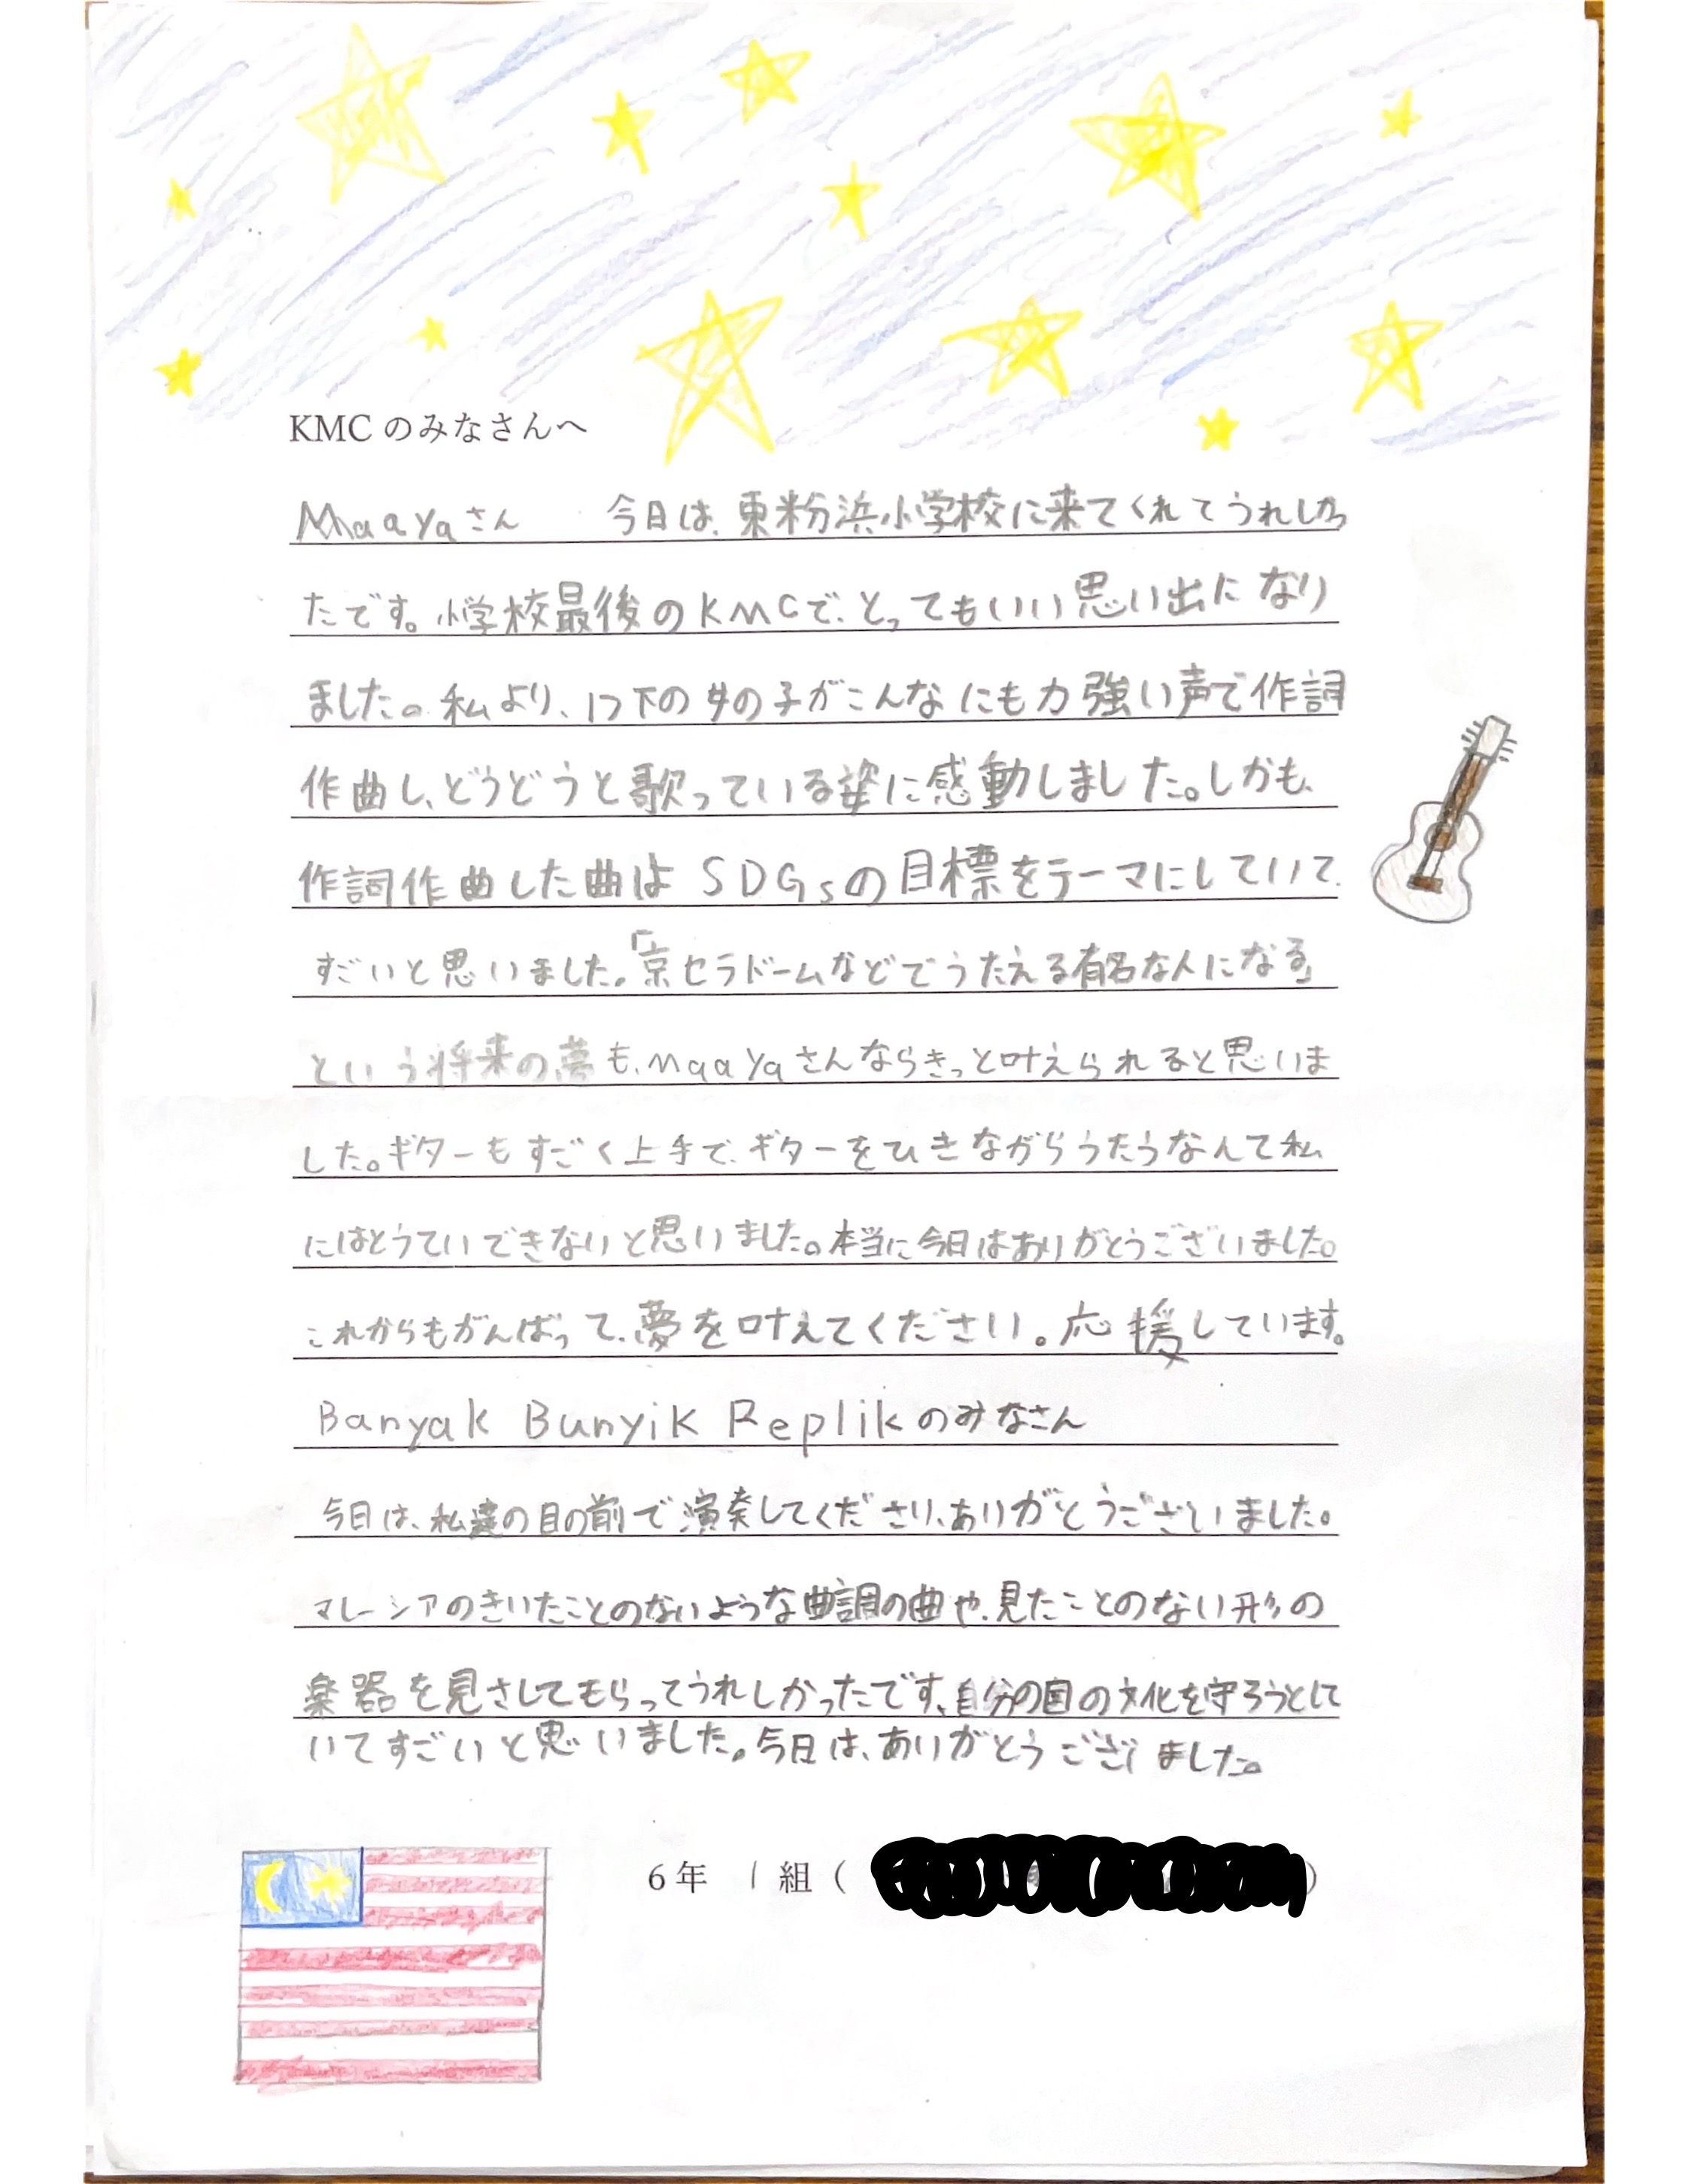 KMCのみなさんへ
Maayaさん 今日は、東粉浜小学校に来てくれてうれしかっ
たです。小学校最後のKMCで、とってもいい思い出になり
ました。私より、1つ下の女の子がこんなにも力強い声で作詞
作曲し、どうどうと歌っている姿に感動しました。しかも、
作詞作曲した曲はSDGsの目標をテーマにしていて、
すごいと思いました。「京セラドームなどでうたえる有名な人になる」
という将来の夢も、Maayaさんならきっと叶えられると思いま
した。ギターもすごく上手で、ギターをひきながらうたうなんて私
にはとうていできないと思いました。本当に今日はありがとうございました。
これからもがんばって、夢を叶えてください。応援しています。
Banyak Bunyik Replikのみなさん
今日は、私達の目の前で演奏してくださり、ありがとうございました。
マレーシアのきいたことのないような曲調の曲や、見たことのない形の
楽器を見さしてもらってうれしかったです。自分の国の文化を守ろうとして
いてすごいと思いました。今日は、ありがとうございました。
6年 1組( )